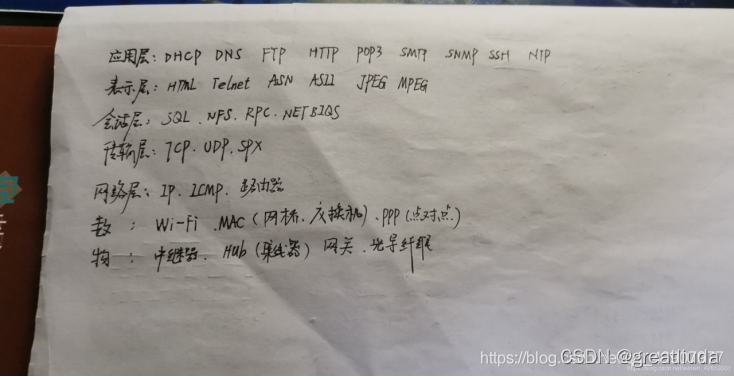 应用层: DHCP DNS FTP HTTP POP3 SMTP SNMP SSH NTP
表示层: HTML Telnet ASN ASII JPEG MPEG
会话层: SQL . NFS . RPC . NETBIOS
传输层: TCP . UDP . SPX
网络层: IP . ICMP . 路由器
数 : Wi-Fi . MAC (网桥、交换机) . PPP (点对点)
物 : 中继器 . Hub (集线器) 网关 . 光导纤维
https://blog.
CSDN @greatliuda